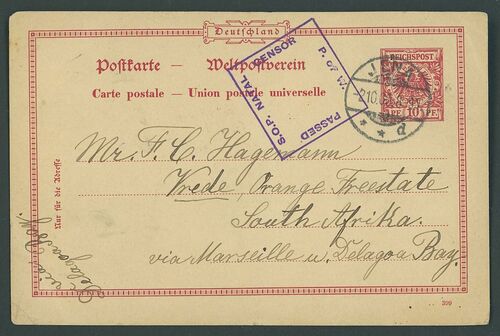 Deutschland
Postkarte — Weltpostverein
Carte postale — Union postale universelle
S.O.P. NATAL CENSOR
PASSED
REICHSPOST
10 PF
JENA
d
Nur für die Adresse
Mr. F. C. Hagemann
Vrede, Orange Freestate
South Afrika.
via Marseille u. Delagoa Bay.
via
Delagoa Bay.
399